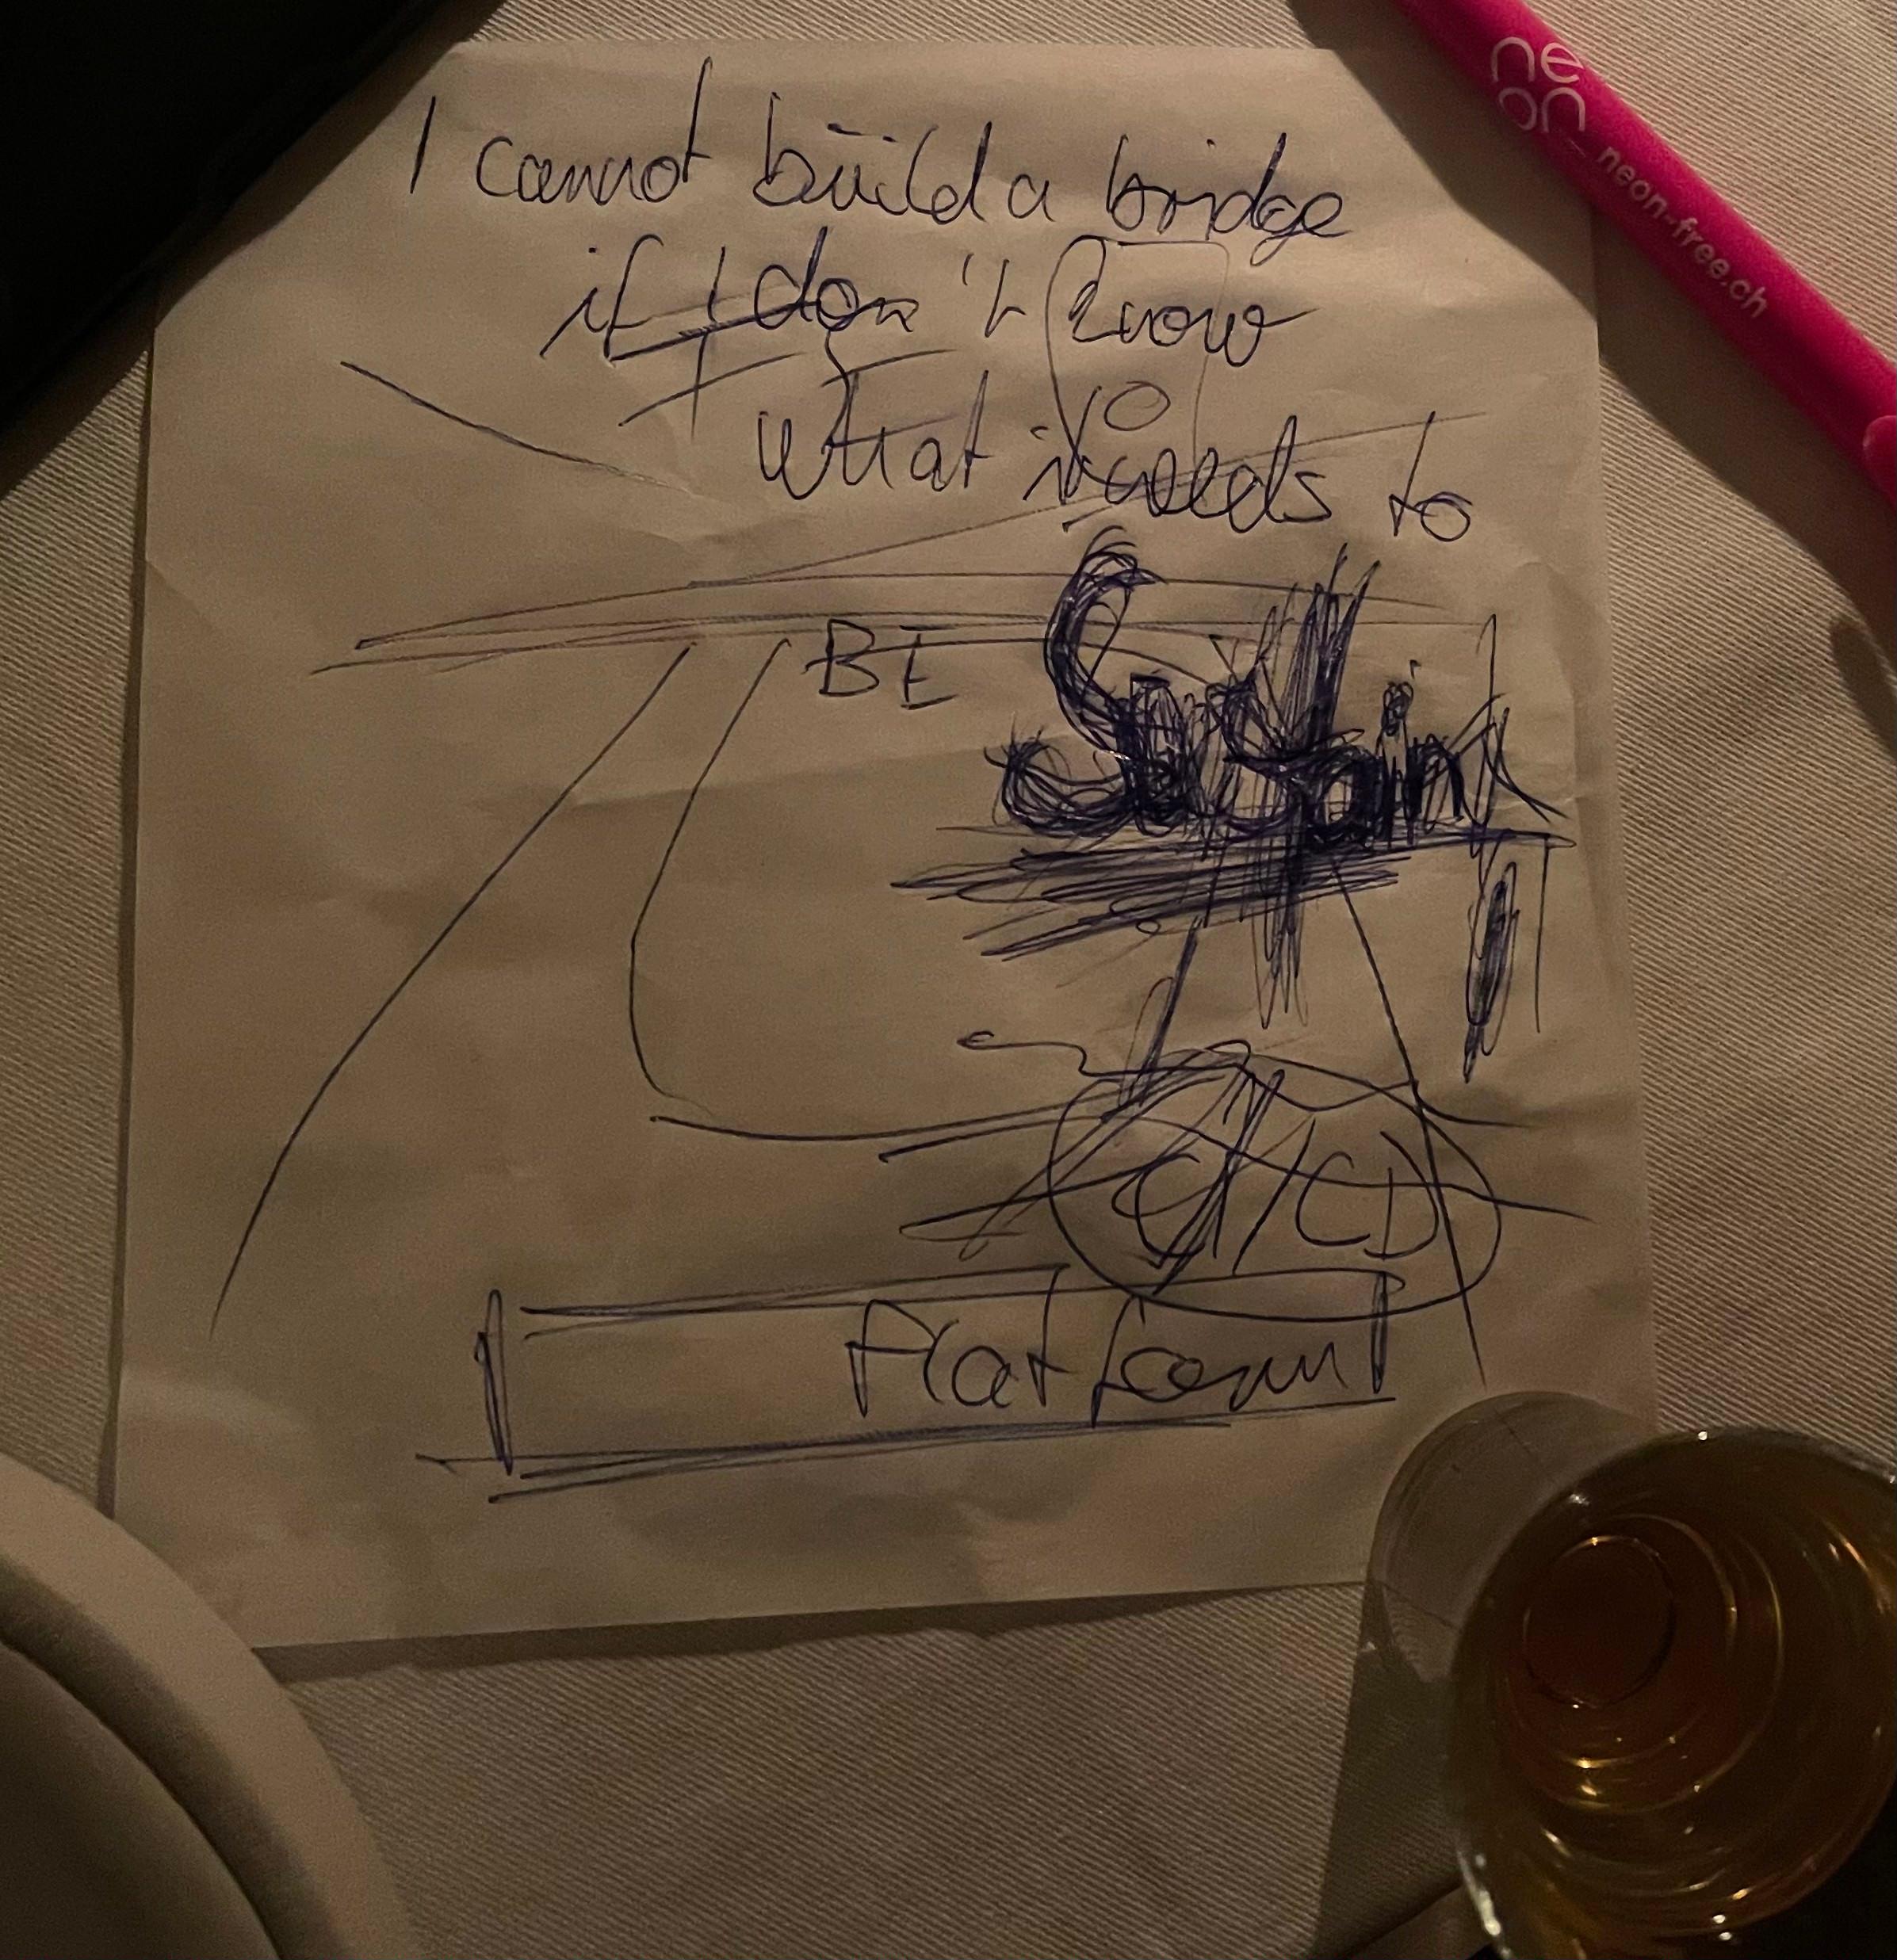 I cannot build a bridge
if I don't know
what it needs to
BE
CI/CD
Platform
ne
on
neon-free.ch